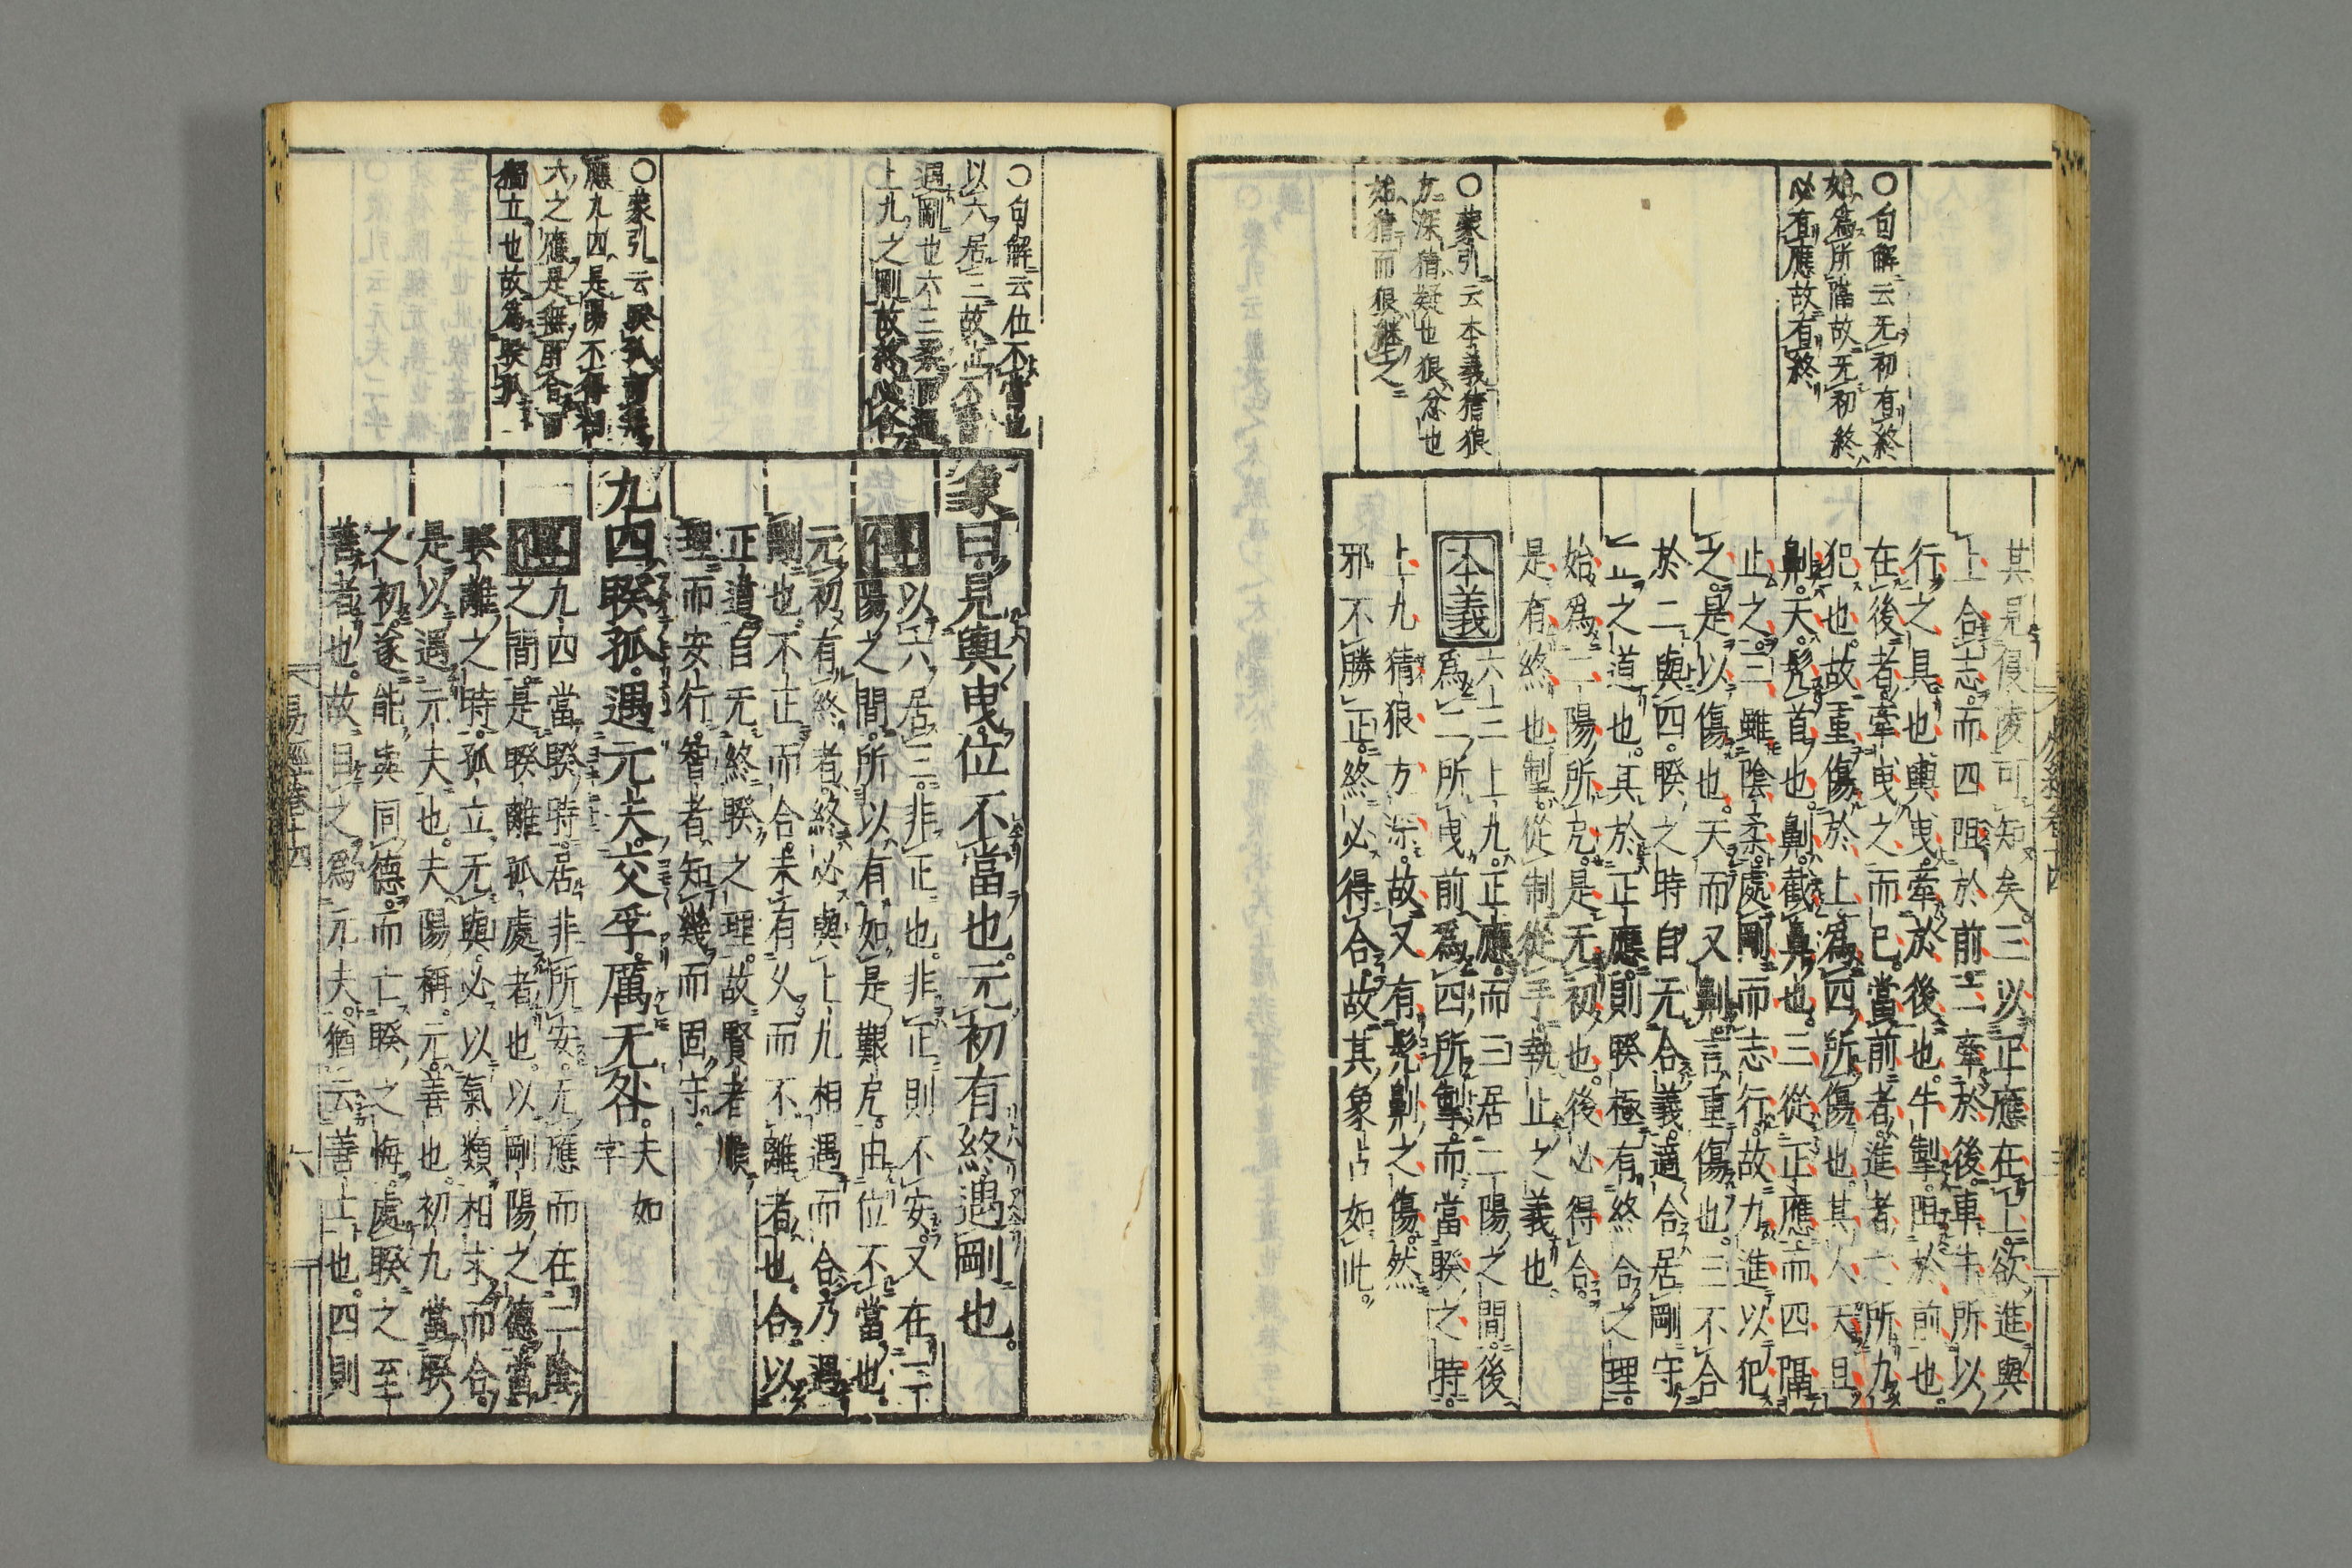 〇句解云无初有終
始爲所隔故无初終
必有應故有終
〇蒙引云本義猜狠
尤深猜疑也狠忿也
始猜而狠継之
其見侵陵可知矣三以正應在上欲進與
上合志而四阻於前二牽於後車牛所以
行之具也輿曳牽於後也牛掣阻於前也
在後者牽曳之而已當前者進者之所力
犯也故重傷於上爲四所傷也其人天且
劓天髡首也劓截鼻也三從正應而四隔
止之三雖陰柔處剛而志行故力進以犯
之是以傷也天而又劓言重傷也三不合
於二與四睽之時自无合義適合居剛守
正之道也其於正應則睽極有終合之理
始爲二陽所戹是无初也後必得合
是有終也掣從制從手執止之義也
本義
六三上九正應而三居二陽之間後
爲二所曳前爲四所掣而當睽之時
上九猜狠方深故又有髡劓之傷然
邪不勝正終必得合故其象占如此
易經卷十四
〇句解云位不當也
以六居三故位不當
遇剛也六三柔而遇
上九之剛故終必合
〇蒙引云睽孤言无
應九四是陽不得初
六之應是無所合而
獨立也故爲睽孤
象曰見輿曳位不當也元初有終遇剛也
傳
以六居三非正也非正則不安又在二
陽之間所以有如是艱戹由位不當也
元初有終者終必與上九相遇而合乃遇
剛也不正而合未有久而不離者也合以
正道自无終睽之理故賢者順
理而安行智者知幾而固守
九四睽孤遇元夫交孚厲无咎
夫如
字
傳
九四當睽時居非所安无應而在二陰
之間是睽離孤處者也以剛陽之德當
睽離之時孤立无與必以氣類相求而合
是以遇元夫也夫陽稱元善也初九當睽
之初遂能與同德而亡睽之悔處睽之至
善者也故目之爲元夫猶云善士也四則
易經卷十四
六